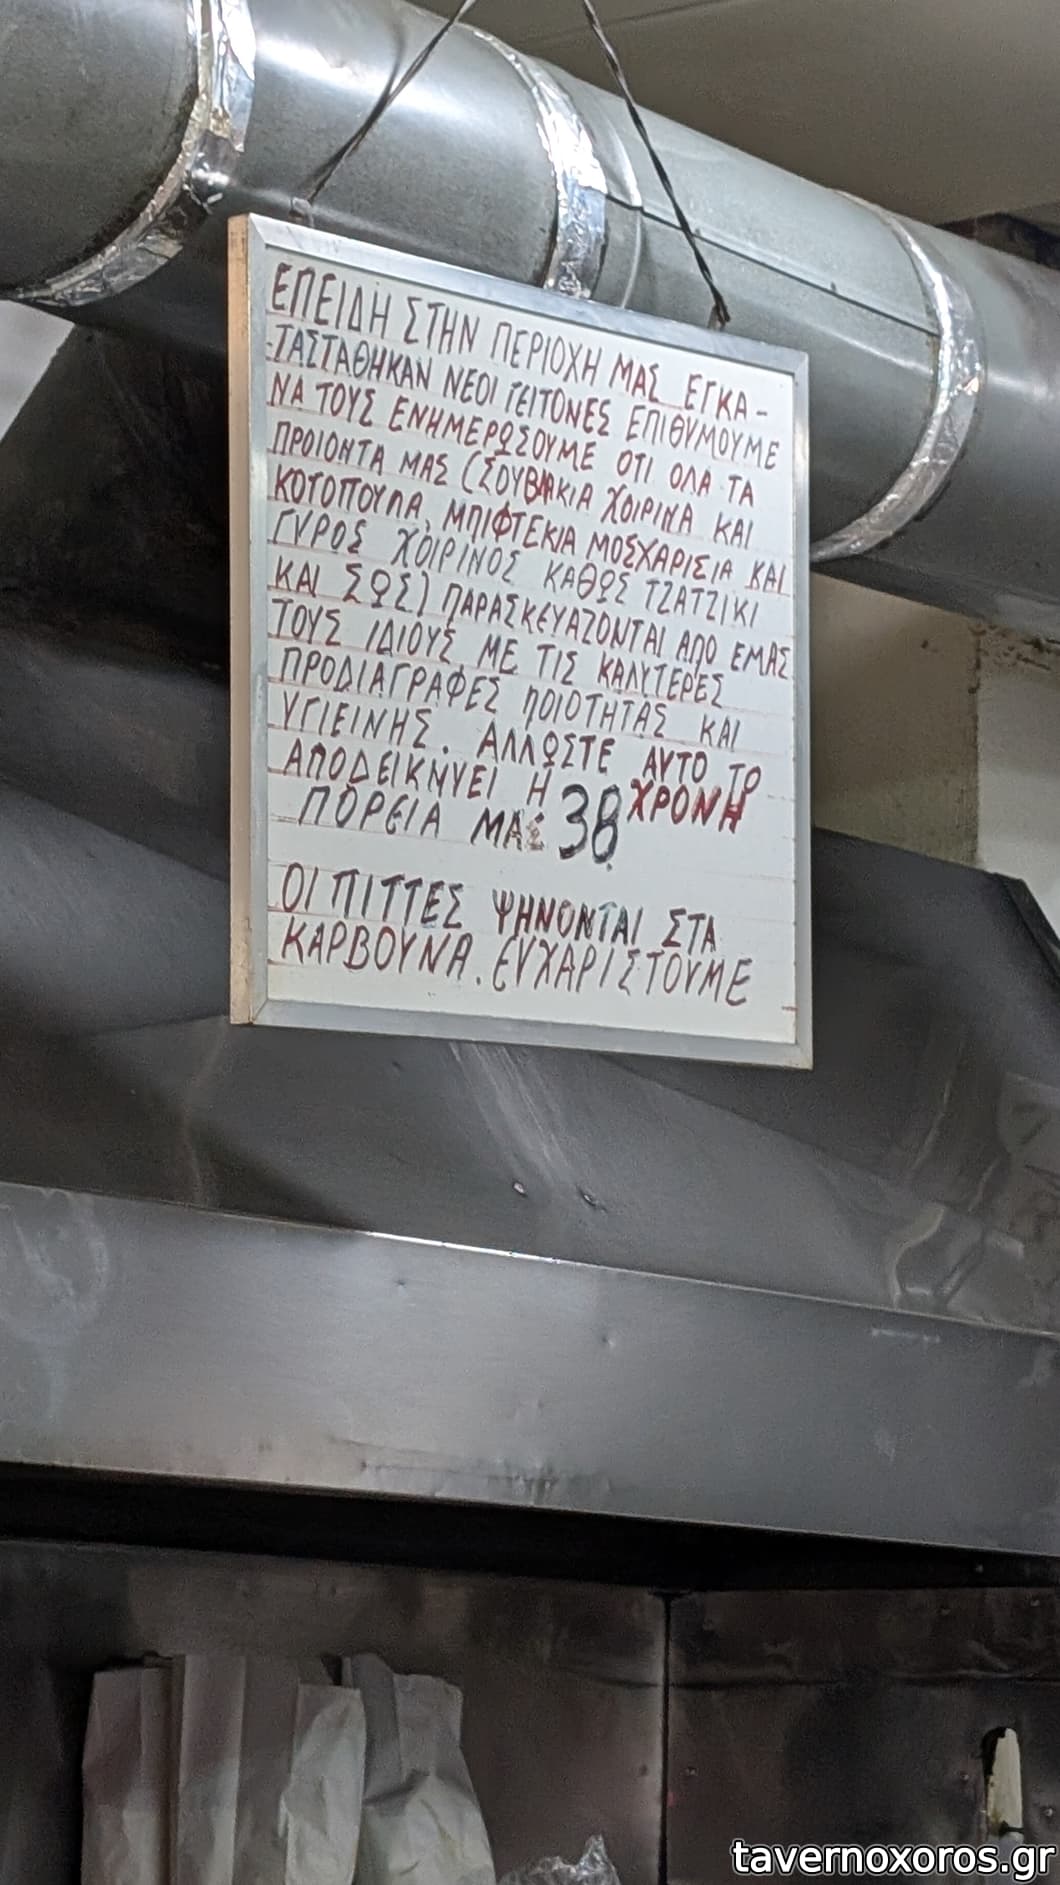 ΕΠΕΙΔΗ ΣΤΗΝ ΠΕΡΙΟΧΗ ΜΑΣ ΕΓΚΑ-
-ΤΑΣΤΑΘΗΚΑΝ ΝΕΟΙ ΓΕΙΤΟΝΕΣ ΕΠΙΘΥΜΟΥΜΕ
ΝΑ ΤΟΥΣ ΕΝΗΜΕΡΩΣΟΥΜΕ ΟΤΙ ΟΛΑ ΤΑ
ΠΡΟΙΟΝΤΑ ΜΑΣ (ΣΟΥΒΛΑΚΙΑ ΧΟΙΡΙΝΑ ΚΑΙ
ΚΟΤΟΠΟΥΛΑ, ΜΠΙΦΤΕΚΙΑ ΜΟΣΧΑΡΙΣΙΑ ΚΑΙ
ΓΥΡΟΣ ΧΟΙΡΙΝΟΣ ΚΑΘΩΣ ΤΖΑΤΖΙΚΙ
ΚΑΙ ΣΩΣ) ΠΑΡΑΣΚΕΥΑΖΟΝΤΑΙ ΑΠΟ ΕΜΑΣ
ΤΟΥΣ ΙΔΙΟΥΣ ΜΕ ΤΙΣ ΚΑΛΥΤΕΡΕΣ
ΠΡΟΔΙΑΓΡΑΦΕΣ ΠΟΙΟΤΗΤΑΣ ΚΑΙ
ΥΓΙΕΙΝΗΣ. ΑΛΛΩΣΤΕ ΑΥΤΟ ΤΟ
ΑΠΟΔΕΙΚΝΥΕΙ Η 38 ΧΡΟΝΗ
ΠΟΡΕΙΑ ΜΑΣ
ΟΙ ΠΙΤΤΕΣ ΨΗΝΟΝΤΑΙ ΣΤΑ
ΚΑΡΒΟΥΝΑ. ΕΥΧΑΡΙΣΤΟΥΜΕ
tavernoxoros.gr